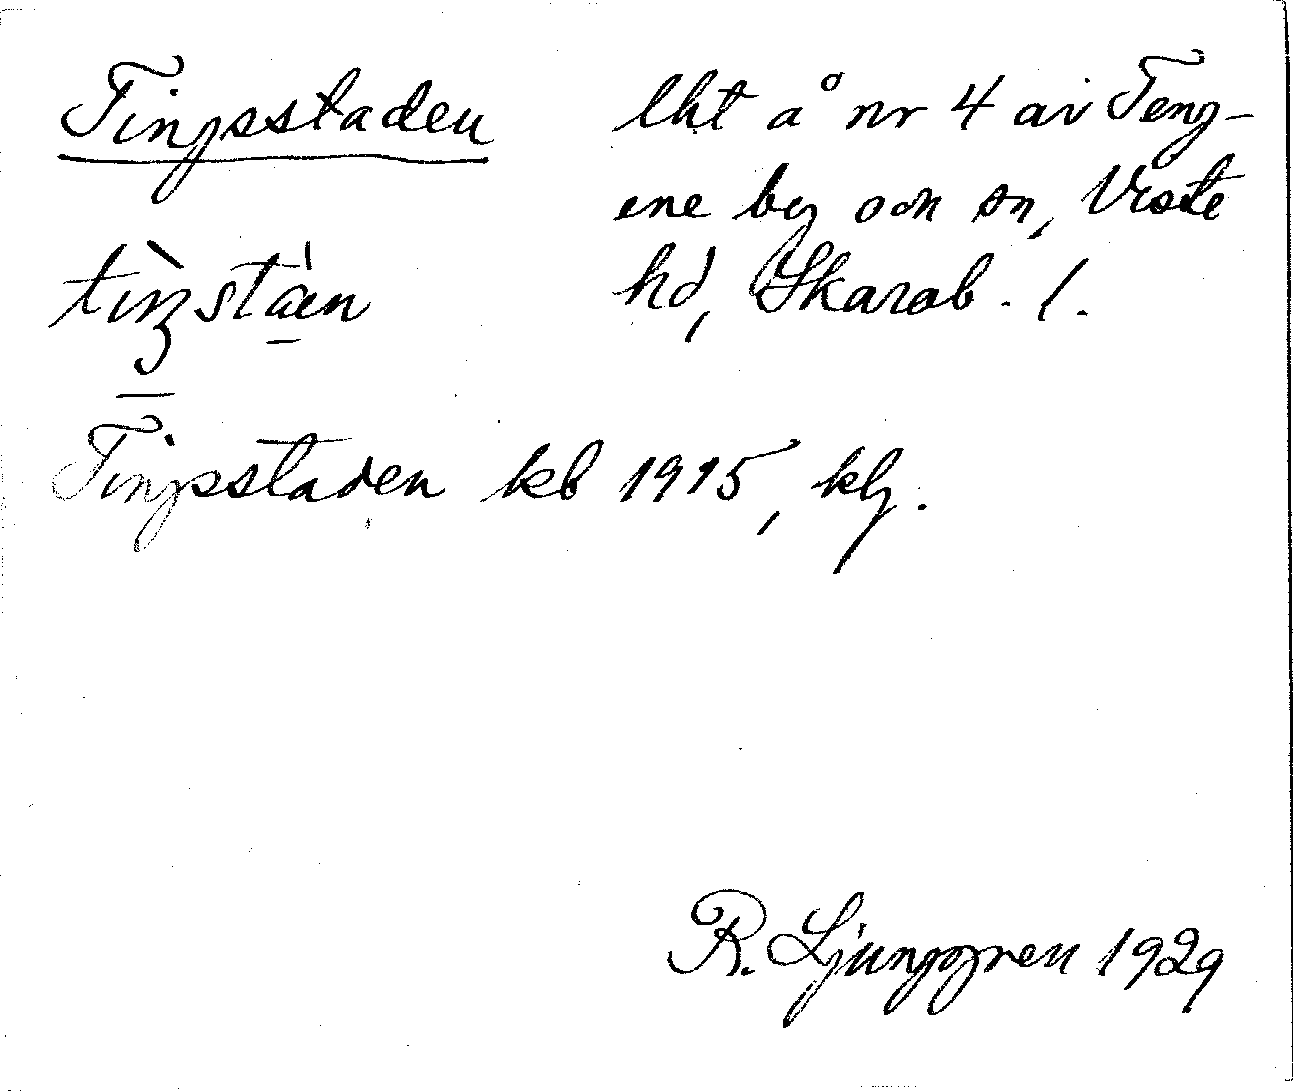 Tingsstaden
lht å nr 4 av Teng-
ene by och sn, Viste
hd, Skarab. l.
tìŋstàen
Tingsstaden kb 1915, klj.
R. Ljunggren 1929